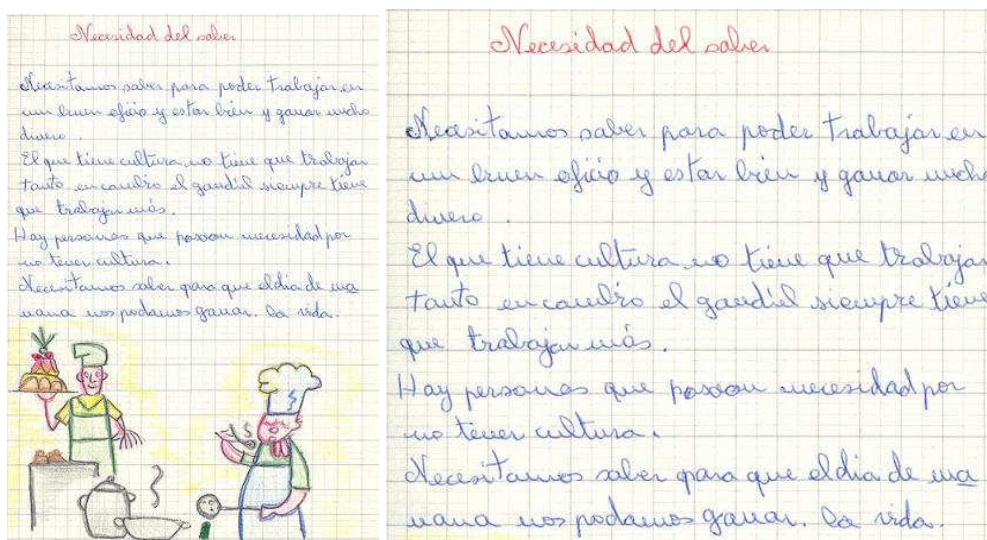 Necesidad del saber
Necesitamos saber para poder trabajar en
un bruen oficio y estar bien y ganar mucho
dinero.
El que tiene cultura no tiene que trabajar
tanto en canbio el gandúl siempre tiene
que trabajar más.
Hay personas que pasan necesidad por
no tener cultura.
Necesitamos saber para que el dia de ma
nana nos podamos ganar. la vida.
Necesidad del saber
Necesitamos saber para poder trabajar en
un bruen oficio y estar bien y ganar mucho
dinero.
El que tiene cultura no tiene que trabajar
tanto en canbio el gandúl siempre tiene
que trabajar más.
Hay personas que pasan necesidad por
no tener cultura.
Necesitamos saber para que el dia de ma
nana nos podamos ganar. la vida.